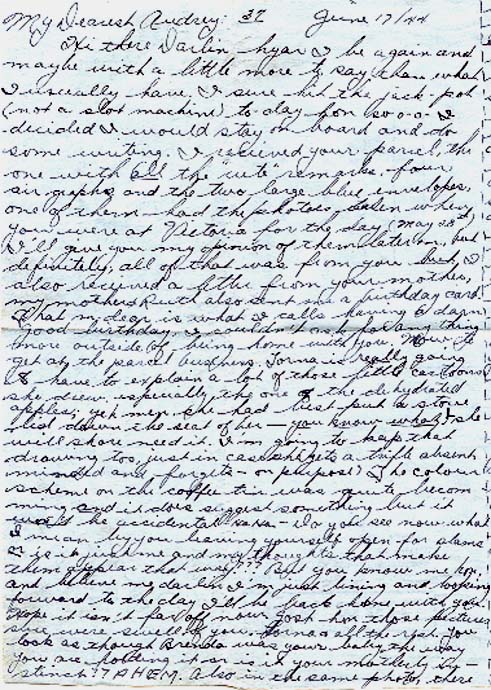 My Dearest Audrey: 37 June 17/44
Hi there Darlin - hyar I be again and
maybe with a little more to say than what
I usually have. I sure hit the jack-pot
(not a slot machine) to-day hon so-o-o- I
decided I would stay on board and do
some writing. I recieved your parcel, the
one with all the "cute" remarks, four
air-graphs and the two large blue envelopes,
one of them had the photoes taken when
you were at Victoria for the day (May
I'll give you my opinion of them later on, but
definitely, all of that was from you I
also received a letter from your mother,
my mother & Ruth also sent me a birthday card.
That my dear is what I calls having a darn
good birthday, I couldn't ask for any thing
more outside of being home with you. Now to
get at the parcel business. Torna is really going
to have to explain a lot of those little cartoons
she drew, especially the one of the dehydrated
apples; yeh men, she had best put a stove
lid down the seat of her - you know what! she
will shore need it. I'm going to kep that
drawing too, just in case she gets a trifle absent
minded and forgets - on purpose! The colour
scheme on the coffee tin was quite becom
ming and it does suggest something but it
must be accidental HAHA - Do you see now what
I mean by you leaving yourself open for slams
or is it just me and my thoughts that make
them appear that way??? But you know me hon,
and believe me darlin I'm just living and looking
forward to the day I'll be back home with you
Hope it isn't far off now. Gosh hon, those pictures
were swell of you, Torna & all the rest. You
look as though Brenda was your baby the way
you are holding it or is it your motherly in-
stinct!? AHEM. Also in the same photo, there